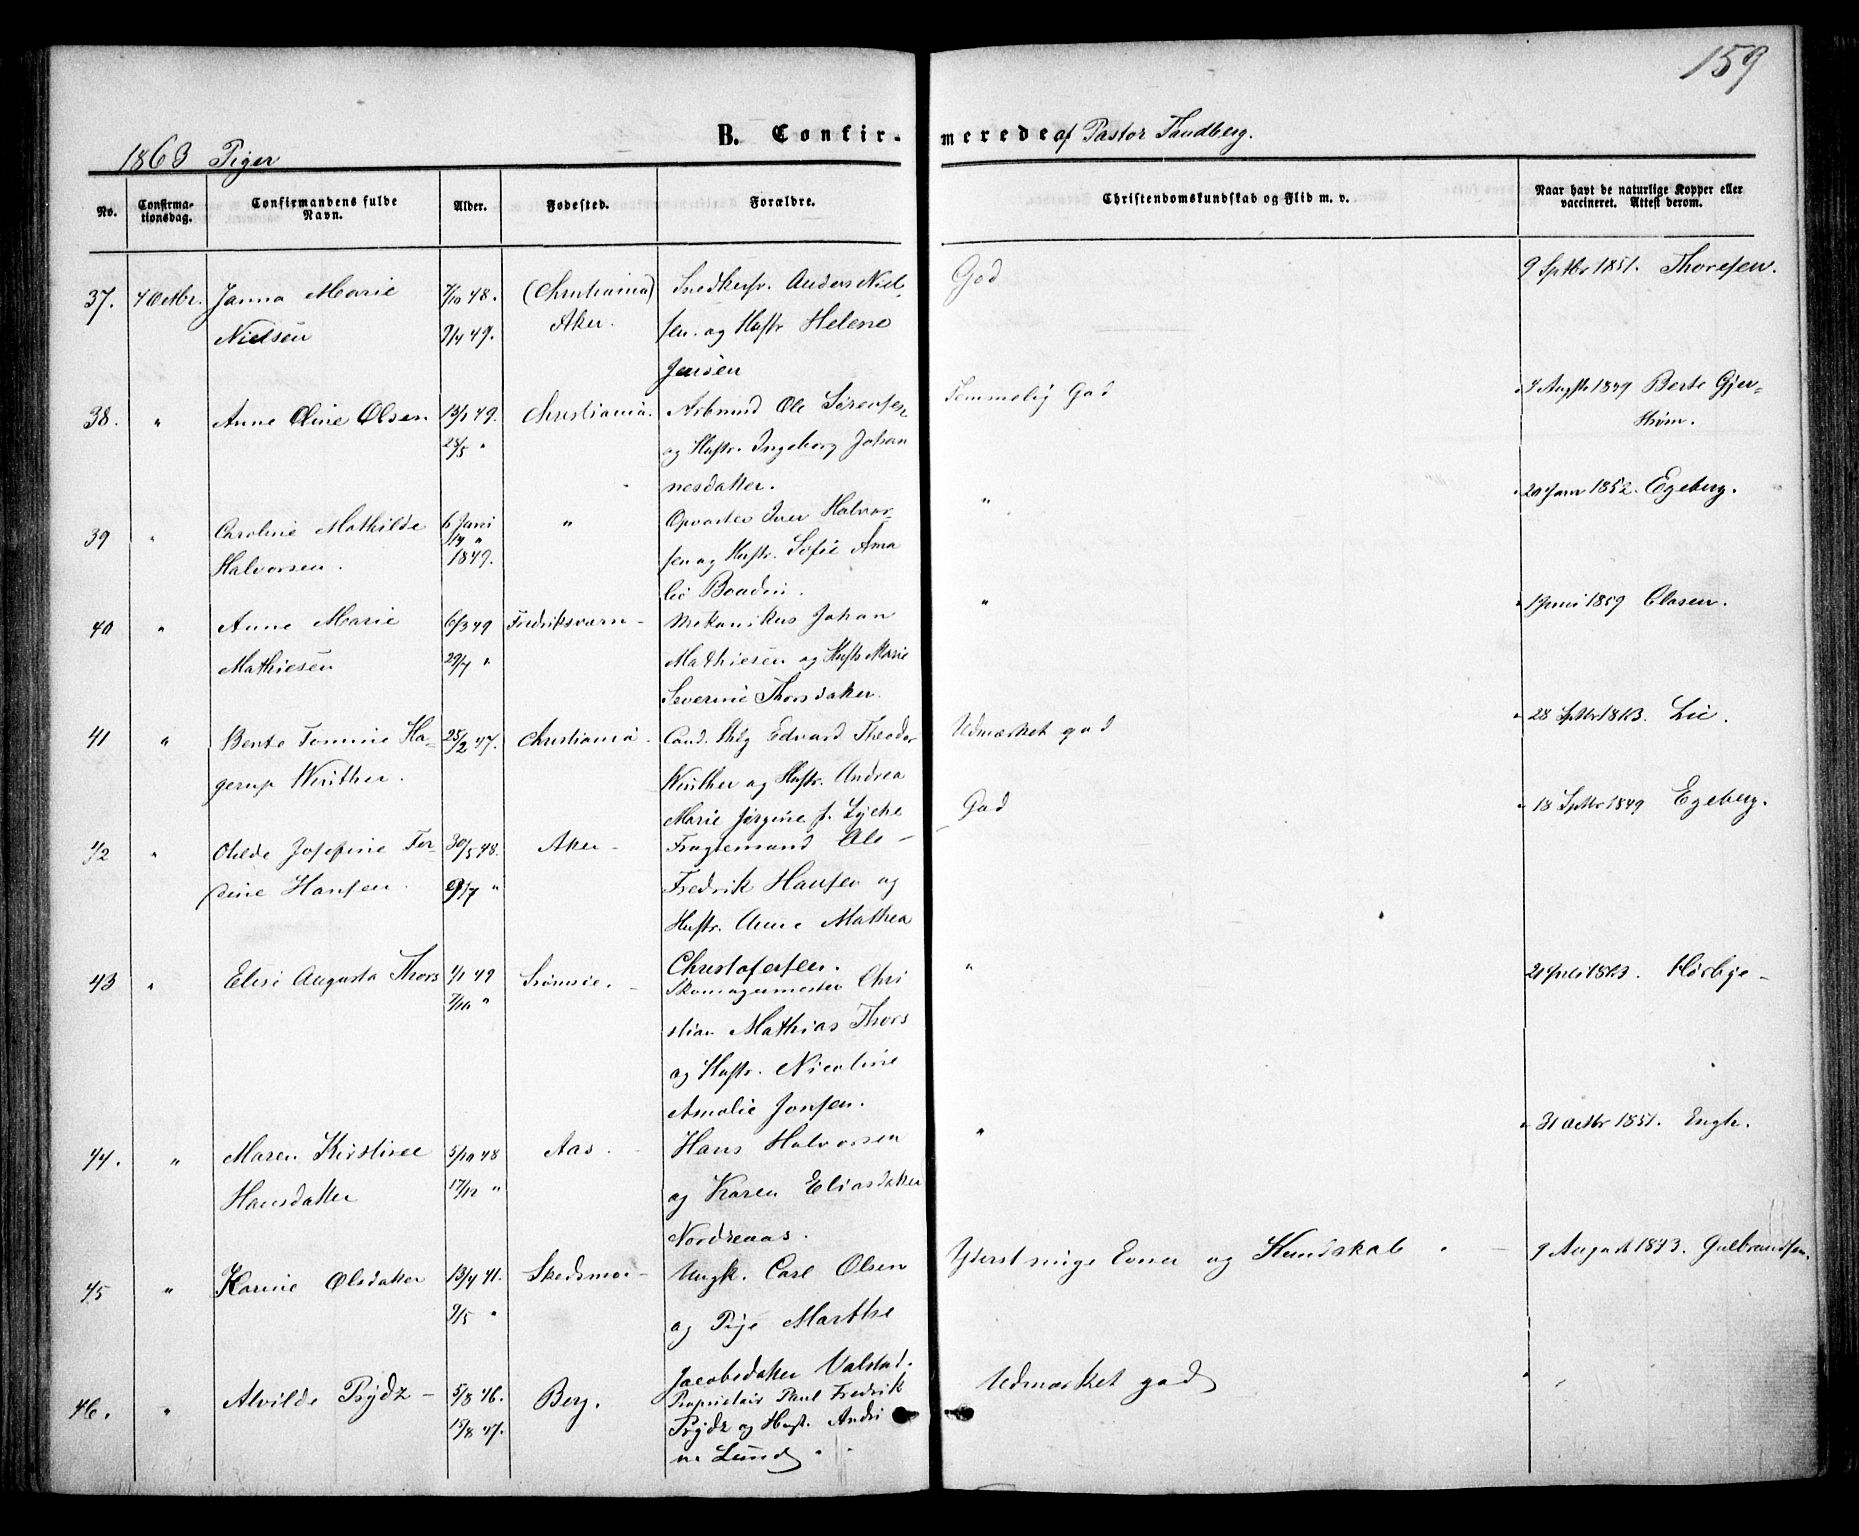 159
B. Confirmerede af Pastor Sandberg.
1863 Piger
No. Confirmationsdag. Confirmandens fulde Navn. Alder. Fødested. Forældre. Christendomskundskab og Flid m. v. Naar havt de naturlige Kopper eller vaccineret. Attest derom.
37. 4 Octbr. Janna Marie 7/10 48. (Christiania) Snedkersv. Anders Niel- God 9 Sptbr 1851. Thoresen.
Nielsen 9/4 49. Aker. sen. og Hustr Helene
Jensen
38. " Anne Oline Olsen 13/1 49. Christiania. Arbmnd Ole Sørensen Temmelig God 4 Augst 1849 Berte Gjer-
28/5 " og Hustr. Ingeborg Johan strøm.
nesdatter.
39 " Caroline Mathilde 6 Juni " Opvarter Iver Halvor- " 20 Janr 1852. Egeberg.
Halvorsen. 1849. sen og Hustr. Sofie Ama
lie
40 " Anne Marie 6/3 49 Fredriksværn - Mekanikus Johan " 1 Juni 1859 Clasen.
Mathiesen 29/7 " Mathiesen og Hustr Marie
Severine Thorsdatter.
41 " Bente Tomine Ha- 25/2 47. Christiania. Cand. Edvard Theodor Udmærket god 28 Sptbr 1863. Lie.
gerup Winther. Winther og Hustr. Andrea
Marie Jørgine f. Lyche
42 " Josefine 30/5 48. Aker - Fragtemand Ole - God 18 Sptbr 1849 Egeberg.
Hansen. 9/7 " Fredrik Hansen og
Hustr. Anne Mathea
Christofersen.
43 " Elise Augusta Thors 1/1 49 Strømsøe. Skomagermester Chri " 1863. Hørbye -
7/10 " stian Mathias Thors
og Hustr. Nicoline
Amalie Jonsen.
44. " Maren Kirstine 5/10 48 Aas. Hans Halvorsen " 31 Octbr 1851. Engh.
Hansdatter 17/12 " og Karen Eliasdatter
Nordreaas.
45 " Karine Olsdatter 13/4 41. Skedsmo - Ungk. Carl Olsen Yderst ringe Evner og Kundskab. 9 August 1843. Gulbrandsen.
9/5 " og Pige Marthe
Jacobsdatter Valstad.
46. " Alvilde Prydz - 5/8 46. Berg. Proprietair Paul Fredrik Udmærket god "
15/8 47. Prydz og Hust. Andri
ne Lund.